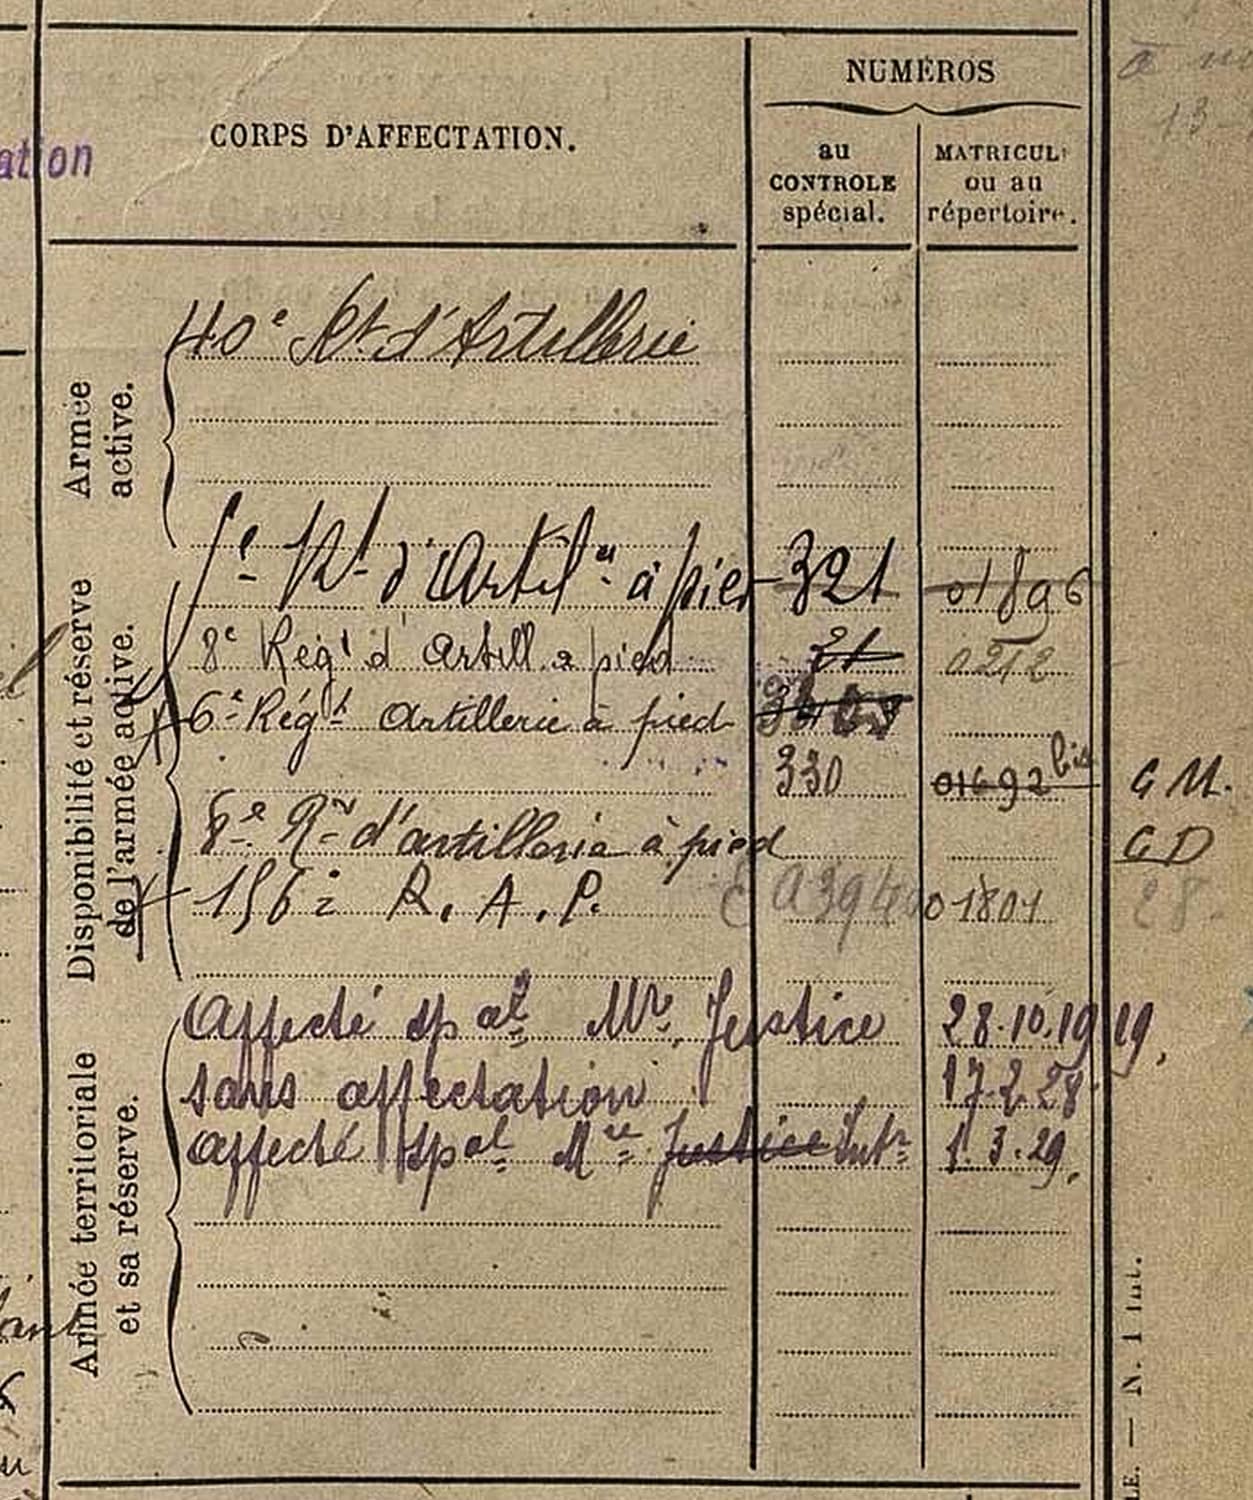 ation
NUMÉROS
CORPS D'AFFECTATION.
au
CONTROLE
spécial.
MATRICUL
ou au
répertoire.
Armée
active.
40e Rt d'Artillerie
Rt d'Artil à pied 321 01896
8e Régt d'Artill à pied 21 0212
6e Régt Artillerie à pied
330 01692 bis G M.
Disponibilité et réserve
de l'armée active.
8e d'artillerie à pied G D
156e R. A. P. 01801 28.
Armée territoriale
et sa réserve.
Affecté spal Mre Justice 28.10.1919.
sans affectation 17.2.28.
affecté spal Mre Justice Intr 1.3.29.
LE. — N. 1 int.